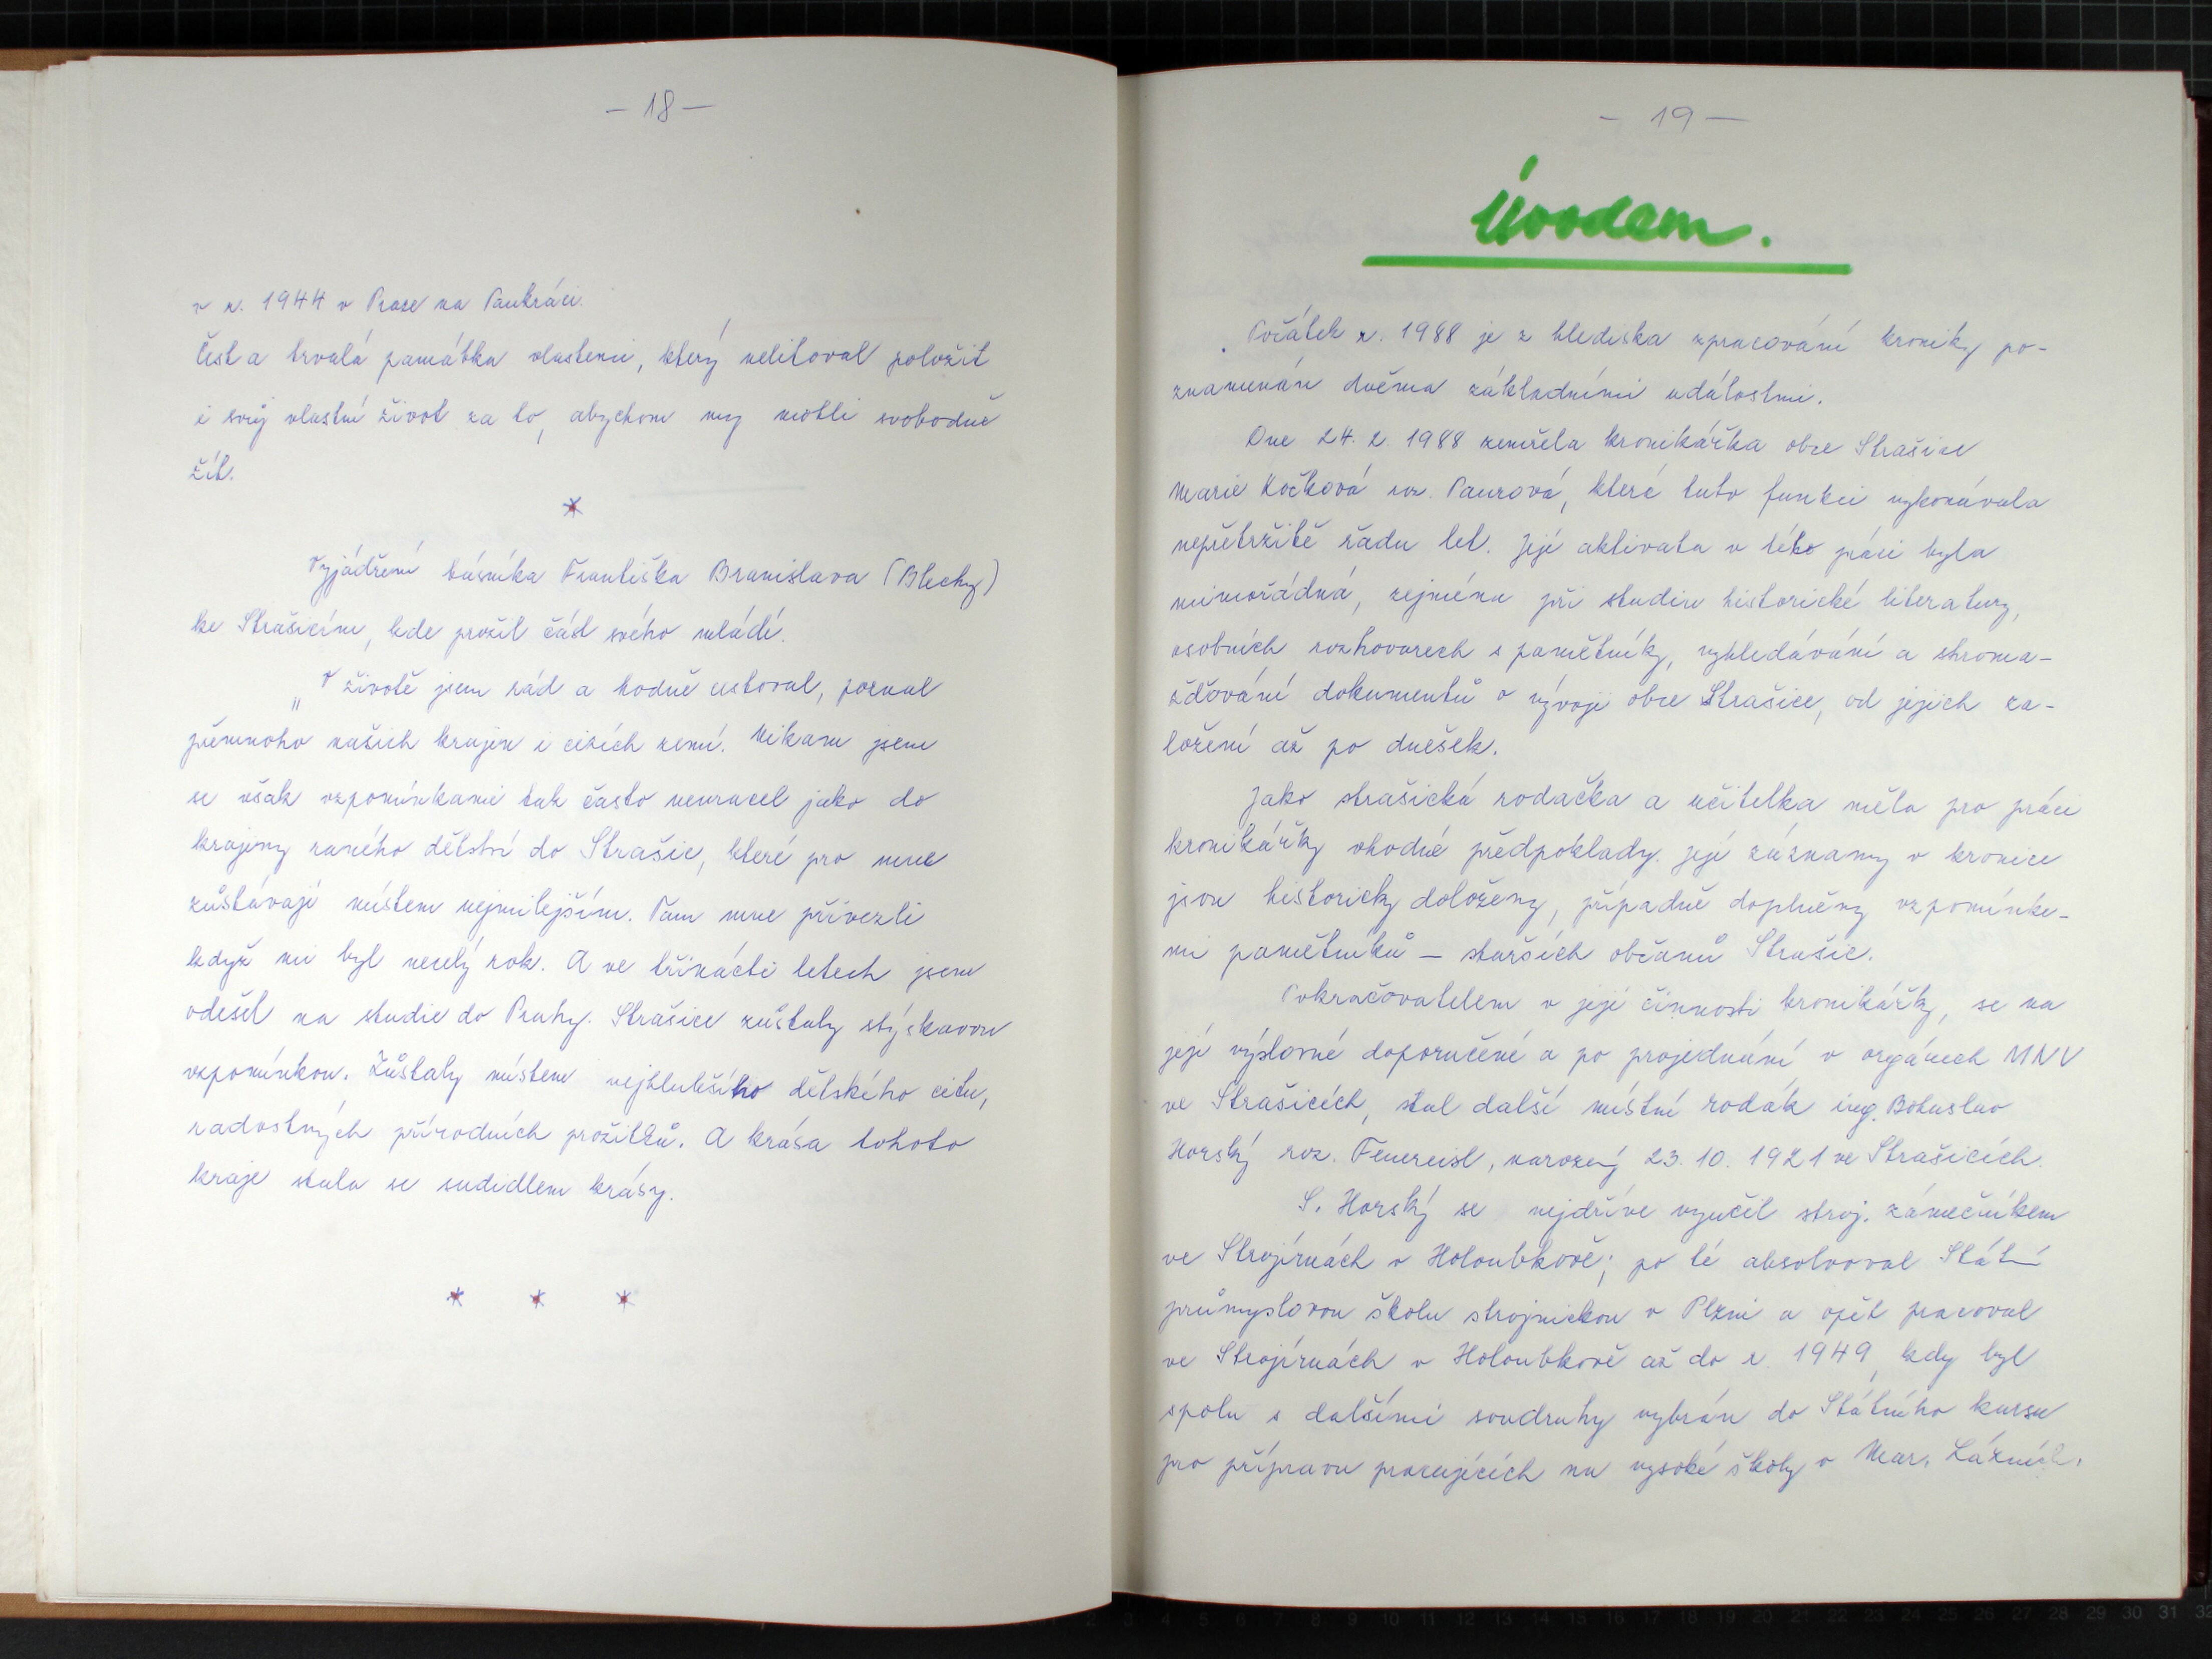 – 18 –
v r. 1944 v Praze na Pankráci.
Čest a trvalá památka vlastenci, který nelitoval položit
i svůj vlastní život za to, abychom my mohli svobodně
žít.
*
Vyjádření básníka Františka Branislava (Blechy)
ke Strašicím, kde prožil část svého mládí.
„V životě jsem rád a hodně cestoval, poznal
přemnoho našich krajin i cizích zemí. Nikam jsem
se však vzpomínkami tak často nevracel jako do
krajiny raného dětství do Strašic, které pro mne
zůstávají místem nejmilejším. Tam mne přivezli
když mi byl necelý rok. A ve třinácti letech jsem
odešel na studie do Prahy. Strašice zůstaly stýskavou
vzpomínkou. Zůstaly místem nejhlubšího dětského citu,
radostných přírodních prožitků. A krása tohoto
kraje stala se sudidlem krásy.
* * *
– 19 –
Úvodem.
Počátek r. 1988 je z hlediska zpracování kroniky po-
znamenán dvěma základními událostmi.
Dne 24. 2. 1988 zemřela kronikářka obce Strašice
Marie Kočková roz. Paurová, které tuto funkci vykonávala
nepřetržitě řadu let. Její aktivata v této práci byla
mimořádná, zejména při studiu historické literatury,
osobních rozhovorech s pamětníky, vyhledávání a shroma-
žďování dokumentů o vývoji obce Strašice, od jejich za-
ložení až po dnešek.
Jako strašická rodačka a učitelka měla pro práci
kronikářky vhodné předpoklady. Její záznamy v kronice
jsou historicky doloženy, případně doplněny vzpomínka-
mi pamětníků – starších občanů Strašic.
Pokračovatelem v její činnosti kronikářky, se na
její výslovné doporučení a po projednání v orgánech MNV
ve Strašicích, stal další místní rodák ing. Bohuslav
Horský roz. Feuereisl, narozený 23. 10. 1921 ve Strašicích.
S. Horský se nejdříve vyučil stroj. zámečníkem
ve Strojírnách v Holoubkově; po té absolvoval Státní
průmyslovou školu strojnickou v Plzni a opět pracoval
ve Strojírnách v Holoubkově až do r. 1949, kdy byl
spolu s dalšími soudruhy vybrán do Státního kursu
pro přípravu pracujících na vysoké školy v Mar. Lázních.
2 3 4 5 6 7 8 9 10 11 12 13 14 15 16 17 18 19 20 21 22 23 24 25 26 27 28 29 30 31 32